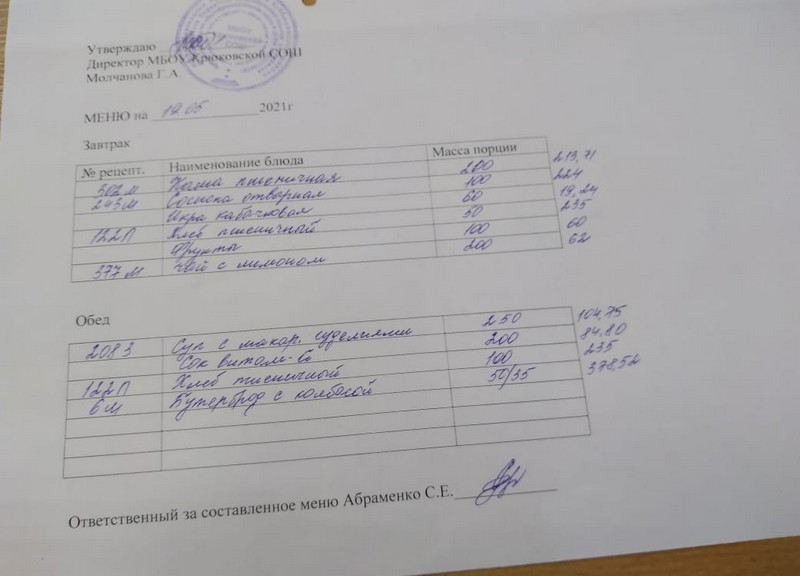 Утверждаю
Директор МБОУ Крюковской СОШ
Молчанова Г.А.
МЕНЮ на 19.05 2021г
Завтрак
№ рецепт. Наименование блюда Масса порции
302м Каша пшеничная 200 213,71
243м Сосиска отварная 100 224
Икра кабачковая 60 19,24
122П Хлеб пшеничный 50 235
Фрукты 100 60
377м Чай с лимоном 200 62
Обед
2083 Суп с макар. изделиями 250 104,75
Сок витам-й 200 84,80
122П Хлеб пшеничный 100 235
6м Бутерброд с колбасой 50/35 378,52
Ответственный за составленное меню Абраменко С.Е.